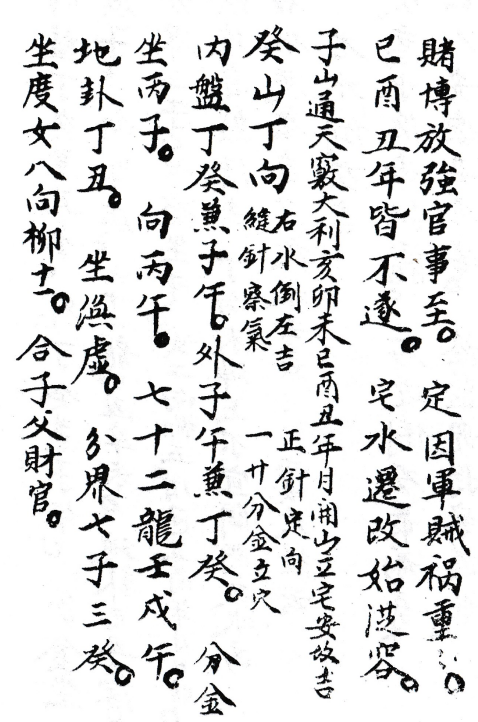 賭博放強官事至。定因軍賊禍重〻。
巳酉丑年皆不遂。宅水遷改始從容。
子山通天竅大利亥卯未巳酉丑年月開山立宅安坟吉
癸山丁向
右水倒左吉 正針定向
縫針察氣 一廿分金立穴
内盤丁癸兼子午。外子午兼丁癸。分金
坐丙子。向丙午。七十二龍壬戌午。
地卦丁丑。坐渙虛。分界七子三癸。
坐度女八向柳十一。合子父財官。